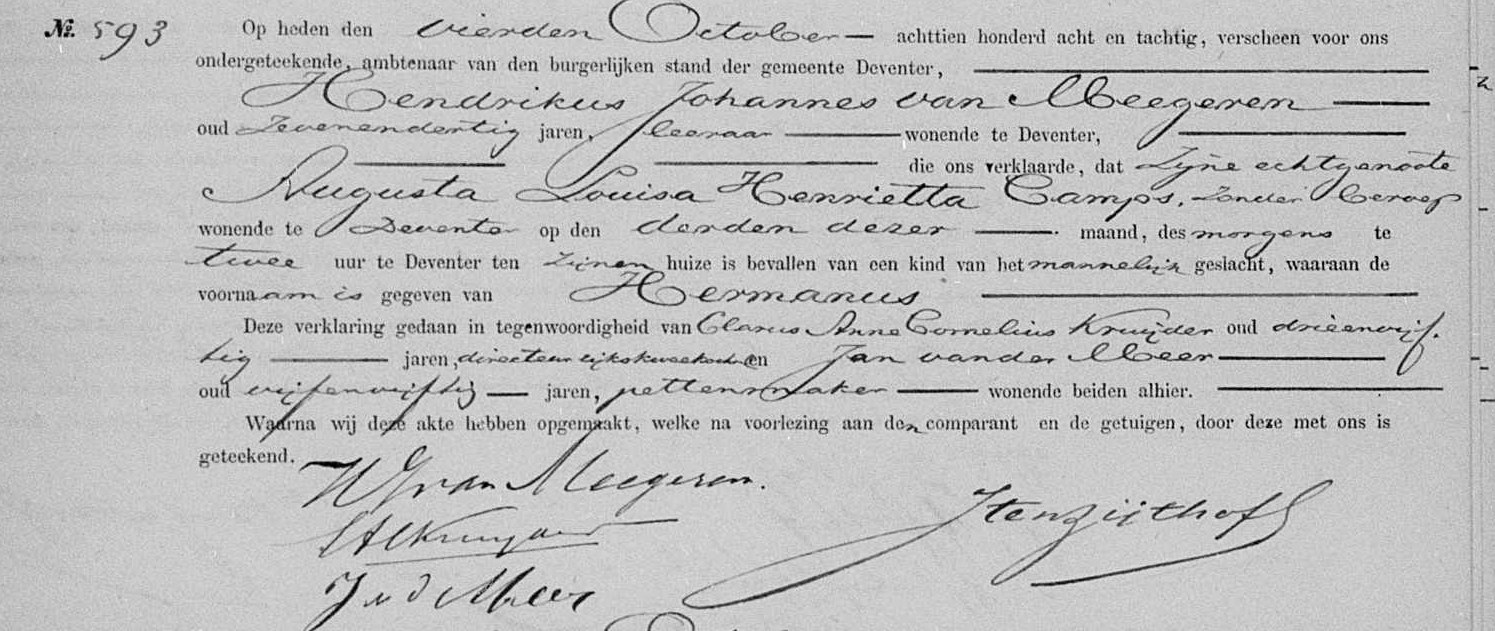 №. 593 Op heden den vierden October achttien honderd acht en tachtig, verscheen voor ons
ondergeteekende, ambtenaar van den burgerlijken stand der gemeente Deventer,
Hendrikus Johannes van Meegeren
oud zevenendertig jaren, leeraar wonende te Deventer,
die ons verklaarde, dat zijne echtgenoote
Augusta Louisa Henrietta Camps, zonder beroep
wonende te Deventer op den derden dezer maand, des morgens te
twee uur te Deventer ten zijnen huize is bevallen van een kind van het mannelijk geslacht, waaraan de
voornaam is gegeven van Hermanus
Deze verklaring gedaan in tegenwoordigheid van Clarus Anne Cornelius Kruyder oud drieenvijf-
tig jaren, directeur rijkskweeksch. en Jan van der Meer
oud vijfenvijftig jaren, pettenmaker wonende beiden alhier.
Waarna wij deze akte hebben opgemaakt, welke na voorlezing aan den comparant en de getuigen, door deze met ons is
geteekend.
HJ van Meegeren.
JvdMeer